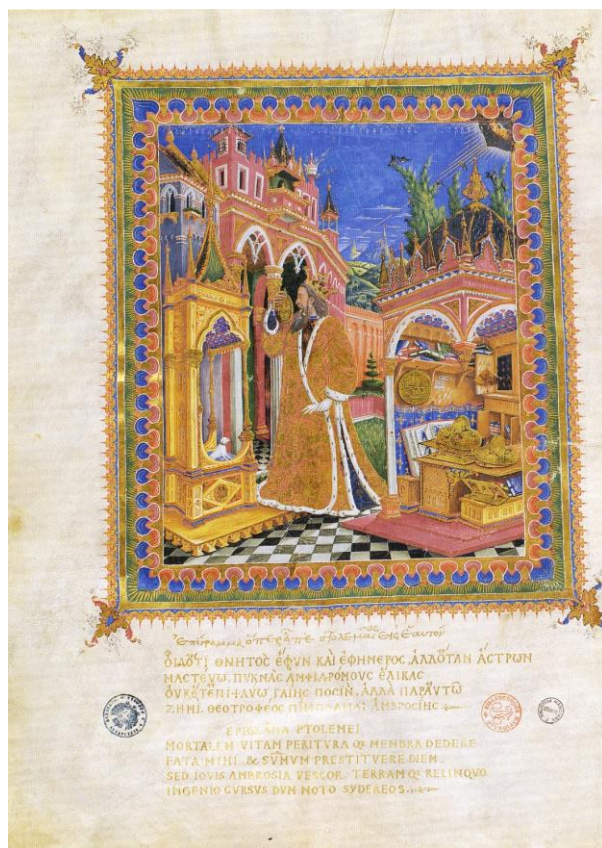 ΟΙΔ ΟΤΙ ΘΝΗΤΟΣ ΕΦΥΝ ΚΑΙ ΕΦΗΜΕΡΟΣ ΑΛΛ ΟΤΑΝ ΑΣΤΡΩΝ
ΜΑΣΤΕΥΩ ΠΥΚΝΑΣ ΑΜΦΙΔΡΟΜΟΥΣ ΕΛΙΚΑΣ
ΟΥΚΕΤ ΕΠΙΨΑΥΩ ΓΑΙΗΣ ΠΟΣΙΝ, ΑΛΛΑ ΠΑΡ ΑΥΤΩ
ΖΗΝΙ ΘΕΟΤΡΟΦΕΟΣ ΠΙΜΠΛΑΜΑΙ ΑΜΒΡΟΣΙΗΣ
PTOLEMEI
MORTALEM VITAM PERITVRA Q MENBRA DEDERE
FATA MIHI & SVMVM PRESTITVERE DIEM.
SED IOVIS AMBROSIA VESCOR TERRAM Q RELINQVO
INGENIO CVRSVS DVN NOTO SYDEREOS